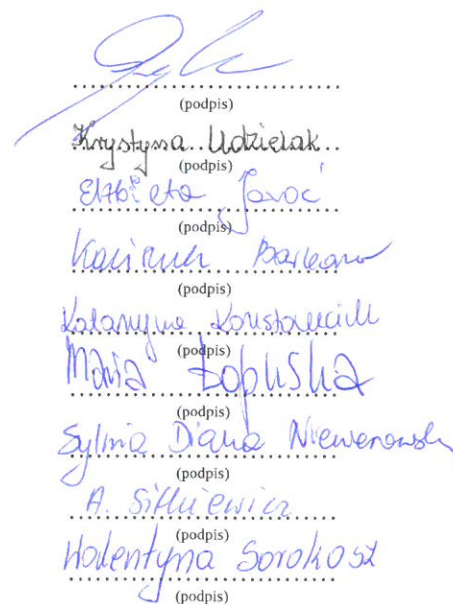 (podpis)
Krystyna Udzielak
(podpis)
Elżbieta Jaroć
(podpis)
Kazimierz
(podpis)
Katarzyna
(podpis)
Maria Łapuska
(podpis)
Sylwia Diana
(podpis)
A. Sitkiewicz
(podpis)
Walentyna Sorokosz
(podpis)